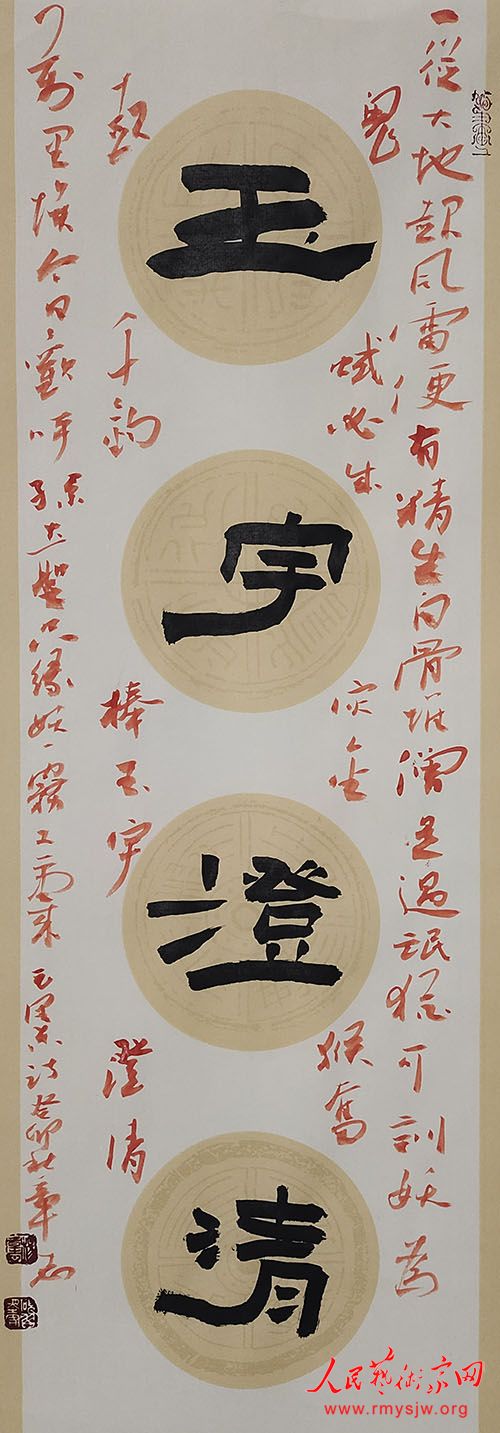 玉宇澄清
一從大地起风雷更有精生白骨堆僧是遇氓猶可訓妖为
鬼
蜮必成
灾金
猴奮
起
千鈞
棒玉宇
澄清
萬里埃今日歡呼孫大聖只緣妖霧又重来毛澤东诗癸卯秋
人民藝術家网
www.rmysjw.org